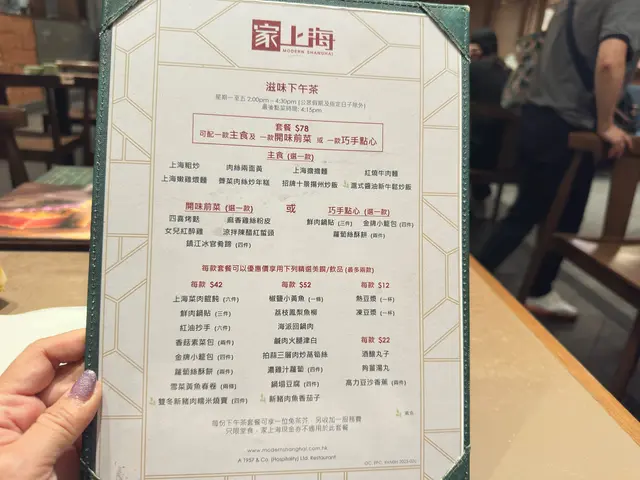 家上海
MODERN SHANGHAI
滋味下午茶
星期一至五 2:00pm – 4:30pm (公眾假期及指定日子除外)
最後點菜時間: 4:15pm
套餐 $78
可配一款主食及 一款開味前菜 或 一款巧手點心
主食 (選一款)
上海粗炒 肉絲兩面黃 上海擔擔麵 紅燒牛肉麵
上海嫩雞煨麵 薺菜肉絲炒年糕 招牌十景揚州炒飯 滬式醬油新牛鬆炒飯
開味前菜 (選一款) 或 巧手點心 (選一款)
四喜烤麩 麻香雞絲粉皮 鮮肉鍋貼 (三件) 金牌小籠包 (四件)
女兒紅醉雞 涼拌陳醋紅蜇頭 蘿蔔絲酥餅 (兩件)
鎮江冰官肴蹄 (四件)
每款套餐可以優惠價享用下列精選美饌/飲品 (最多兩款)
每款 $42 每款 $52 每款 $12
上海菜肉餛飩 (六件) 椒鹽小黃魚 (一條) 熱豆漿 (一杯)
鮮肉鍋貼 (三件) 荔枝鳳梨魚柳 凍豆漿 (一杯)
紅油抄手 (六件) 海派回鍋肉
香菇素菜包 (兩件) 鹹肉火腿津白 每款 $22
金牌小籠包 (四件) 拍蒜三層肉炒萵筍絲 酒釀丸子
蘿蔔絲酥餅 (兩件) 濃雞汁蘿蔔 (四件) 狗薑湯丸
雪菜黃魚春卷 (兩條) 鍋塌豆腐 (四件) 高力豆沙香蕉 (兩件)
雙冬新豬肉糯米燒賣 (四件) 新豬肉魚香茄子
素食
每位下午茶套餐可享一位免茶芥 另收加一服務費
只限堂食，家上海現金券不適用於此套餐
www.modernshanghai.com.hk
A 1957 & Co. (Hospitality) Ltd. Restaurant